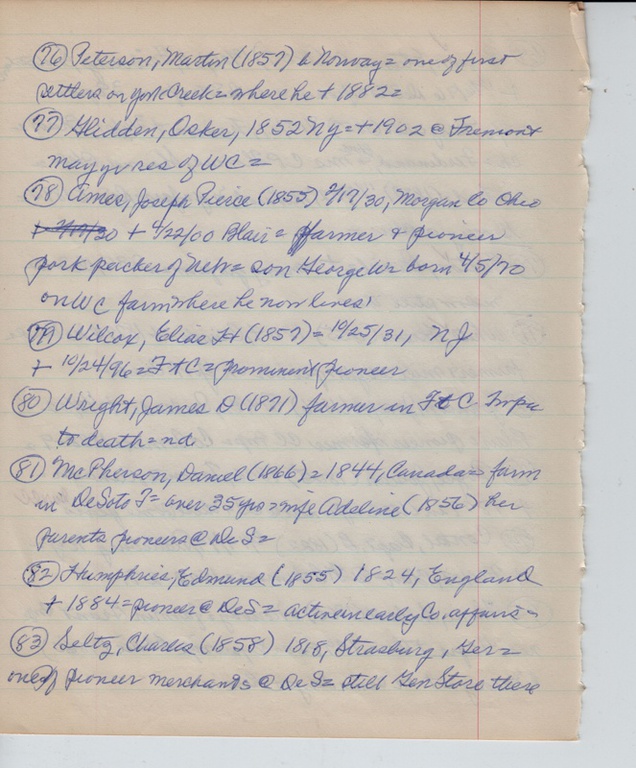 (76) Peterson, Martin (1857) b Norway = one of first
settlers on York Creek = where he + 1882 =
(77) Glidden, Osker, 1852 NY = +1902 @ Fremont
many yrs res of WC =
(78) Ames, Joseph Pierce (1855) 2/17/30, Morgan Co Ohio
+ 2/17/30 + 4/22/00 Blair = farmer & pioneer
pork packer of Neb = son George W = born 4/5/70
on WC farm where he now lives!
(79) Wilcox, Elias H (1857) = 10/25/31, NJ
+ 10/24/96 = Ft C = prominent pioneer
(80) Wright, James D (1871) farmer in Ft C
to death = nd
(81) McPherson, Daniel (1866) = 1844, Canada = farm
in DeSoto T = over 35 yrs = wife Adeline (1856) her
parents pioneers @ DeS =
(82) Humphries, Edmund (1855) 1824, England
+ 1884 = pioneer @ DeS = active in early Co. affairs =
(83) Seltz, Charles (1858) 1818, Strasburg, Ger =
one of pioneer merchants @ DeS = still Gen Store there